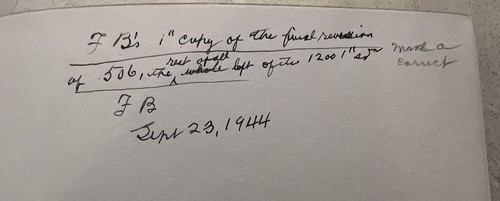 F B's 1" copy of the final revision
of 506, the rest of all whole left of the 1200 1" edn
make a
correct
F B
Sept 23, 1944